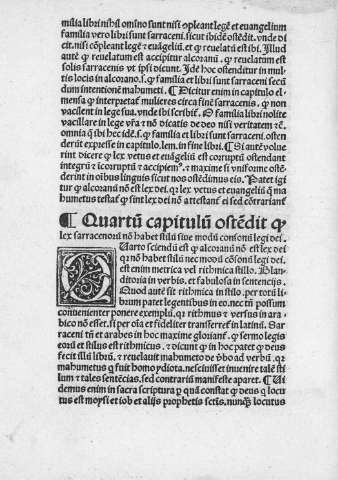 milia libri nihil omīno sunt nisi opleant legē et euangelium
familia vero libri sunt sarraceni. sicut ibidē ostēdit. vnde di
cit. nisi cōpleant legē ⁊ euāgeliū. et ꝙ reuelatū est ibi. Illud
autē ꝙ reuelatum est accipitur alcoranū. ꝙ reuelatum est
solis sarracenis vt ipsi dicunt. Idē hoc ostenditur in mul
tis locis in alcorano. s. ꝙ familia et libri sunt sarraceni secū
dum intentionē mahumeti. ¶ Dicitur enim in capitulo el
mensa ꝙ interpretat mulieres circa finē sarracenis. ꝙ non
vacilent in lege sua. vnde ibi scribit. O familia libri nolite
vacillare in lege vr̄a ⁊ nō dicatis de deo nisi veritatem ⁊c̄.
omnia q̄ ibi hec idē. s. ꝙ familia et libri sunt sarraceni. osten
derūt expresse in capitulo. lem. in fine libri. ¶ Si autē volue
rint dicere ꝙ lex vetus et euāgeliū est corruptū ostendant
integrū ⁊ īcorruptū ⁊ accipiemꝰ. ⁊ maxime si vniforme ostē
derint in oībus linguis sicut nos ostēdimus eis. Patet igi
tur ꝙ alcoranū nō est lex dei. qꝛ lex vetus et euangeliū q̄ ma
humetus testatꝰ ꝙ sint lex dei nō attestant̄ ei sed cōtrariant̄
¶ Quartū capitulū ostēdit ꝙ
lex sarracenorū nō habet stilū siue modū consonū legi dei.
Quarto sciendū est ꝙ alcoranū nō est lex dei
qꝛ nō habet stilū nec modū cōsonū legi dei.
est enim metrica vel rithmica stillo. Blan
ditoria in verbis. et fabulosa in sentencijs.
Quod autē sit rithmica in stilo. per totū li
brum patet legentibus in eo. nec tn̄ possum
conuenienter ponere exemplū. qꝛ rithmus ⁊ versus in ara
bico nō esset. si per oīa et fideliter transferret in latinū. Sar
raceni tn̄ et arabes in hoc maxime gloriant̄. ꝙ sermo legis
eorū et stilus est rithmicus. ⁊ dicunt ꝙ in hoc patet ꝙ deus
fecit illū librū. ⁊ reuelauit mahumeto de v̄bo ad verbū. qꝛ
mahumetus q̄ fuit homo ydiota. nesciuisset inuenire talē sti
lum ⁊ tales sentēcias. sed contrariū manifeste aparet. ¶ Ui
demus enim in sacra scriptura p quā constat ꝙ deus q locu
tus est moysi et iob et alijs prophetis sctīs. nunqȝ locutus